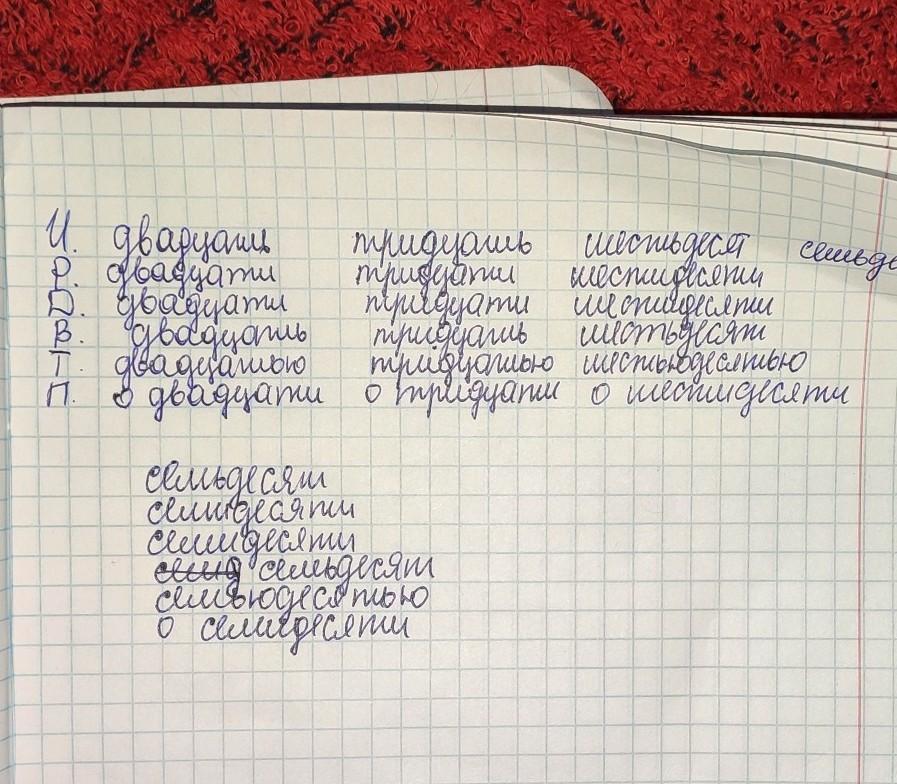 И. двадцать тридцать шестьдесят семьде
Р. двадцати тридцати шестидесяти
Д. двадцати тридцати шестидесяти
В. двадцать тридцать шестьдесят
Т. двадцатью тридцатью шестьюдесятью
П. о двадцати о тридцати о шестидесяти
семьдесят
семидесяти
семидесяти
семид семьдесят
семьюдесятью
о семидесяти